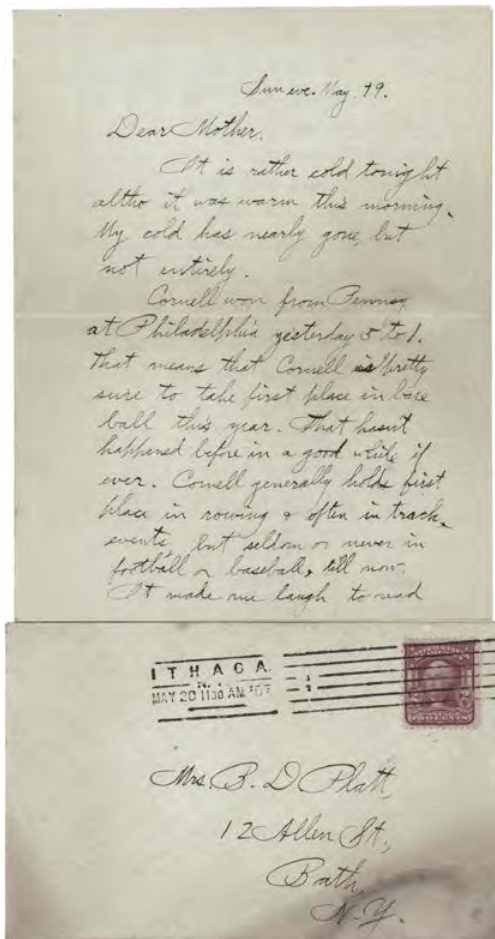 Sun eve. May 19.
Dear Mother.
It is rather cold tonight
altho it was warm this morning.
My cold has nearly gone, but
not entirely.
Cornell won from Pennsy
at Philadelphia yesterday 5 to 1.
That means that Cornell is pretty
sure to take first place in base
ball this year. That hasn't
happened before in a good while if
ever. Cornell generally holds first
place in rowing & often in track
events, but seldom or never in
football or baseball, till now.
It made me laugh to read
ITHACA
N.Y.
MAY 20 1130 AM
1
Mrs. B. D Platt,
12 Allen St.,
Bath,
N.Y.